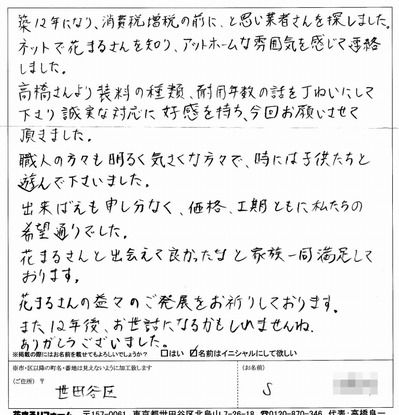 築12年になり、消費税増税の前に、と思い業者さんを探しました。
ネットで花まるさんを知り、アットホームな雰囲気を感じて連絡
しました。
高橋さんより装料の種類、耐用年数の話を丁ねいにして
下さり誠実な対応に好感を持ち、今回お願いさせて
頂きました。
職人の方々も明るく気さくな方々で、時には子供たちと
遊んで下さいました。
出来ばえも申し分なく、価格、工期ともに私たちの
希望通りでした。
花まるさんと出会えて良かったなと家族一同満足して
おります。
花まるさんの益々のご発展をお祈りしております。
また12年後、お世話になるかもしれませんね。
ありがとうございました。
※掲載の際にはお名前を載せてもよろしいでしょうか? □はい ☑名前はイニシャルにして欲しい
※市・区以降の町名・番地は見えないように加工致します
(ご住所) 〒
世田谷区
(お名前)
S
花まるリフォーム 〒157-0061 東京都世田谷区北烏山7-26-18 ☎0120-870-346 代表:高橋良一